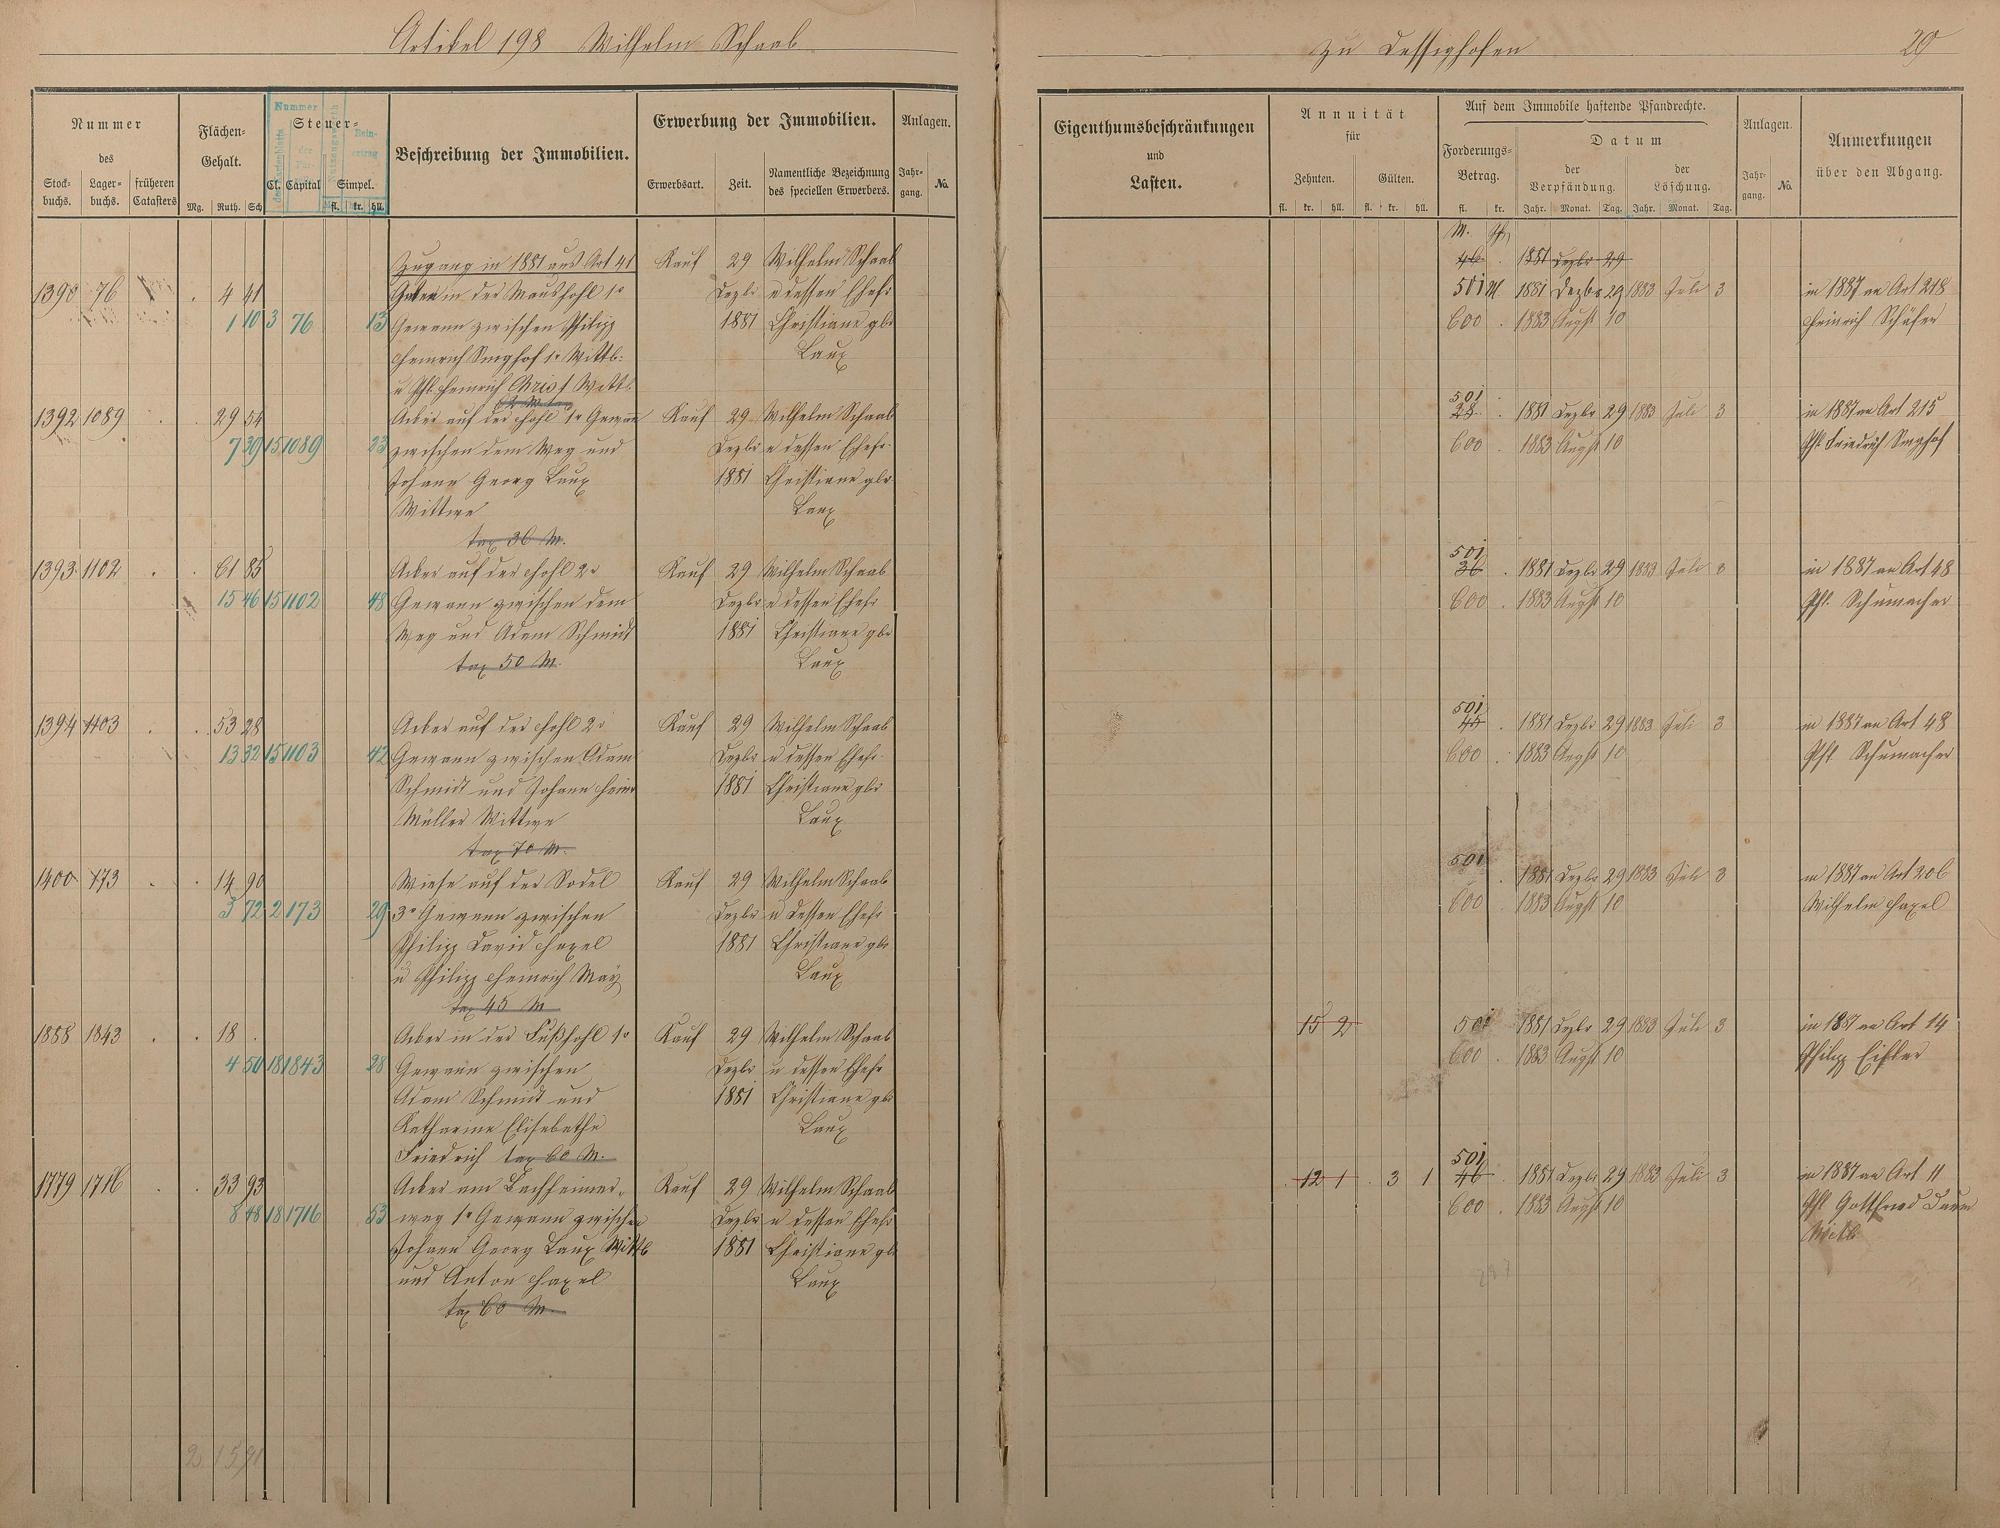 Artikel 198 Wilhelm Schaab
Nummer
des
Stock-
buchs.
Lager-
buchs.
früheren
Catasters
Flächen-
Gehalt.
Mg. Ruth. Sch
Nummer
Steuer-
Cl. Capital
Simpel.
fl. kr. hll.
Beschreibung der Immobilien.
Erwerbung der Immobilien.
Erwerbsart.
Zeit.
Namentliche Bezeichnung
des speciellen Erwerbers.
Anlagen.
Jahr-
gang.
No.
Zugang in 1881 aus Art 41 Kauf 29 Wilhelm Schaab
1390 76 4 41 in der Maushohl 1r Dezbr u dessen Ehefr
1 10 3 76 13 Gewann zwischen Philipp 1881 Christiane gbr
Heinrich Singhof 1r Wittb: Laux
u Phl. Heinrich Christ Wittb.
1392 1089 29 54 Acker auf der Hohl 1r Gewann Kauf 29 Wilhelm Schaab
7 39 15 1089 23 zwischen dem Weg und Dezbr u dessen Ehefr.
Johann Georg Laux 1881 Christiane gbr
Wittwe Laux
tax 36 M.
1393 1102 61 85 Acker auf der Hohl 2r Kauf 29 Wilhelm Schaab
15 46 15 1102 48 Gewann zwischen dem Dezbr u dessen Ehefr
Weg und Adam Schmidt 1881 Christiane gbr
tax 50 M. Laux
1394 1103 53 28 Acker auf der Hohl 2r Kauf 29 Wilhelm Schaab
13 32 15 1103 42 Gewann zwischen Adam Dezbr u dessen Ehefr.
Schmidt und Johann Heinr 1881 Christiane gbr
Müller Wittwe Laux
tax 70 M.
1400 173 14 90 Wiese auf der Sodel Kauf 29 Wilhelm Schaab
3 72 2 173 29 3r Gewann zwischen Dezbr u dessen Ehefr
Philipp David Haxel 1881 Christiane gbr
u Philipp Heinrich May Laux
tax 45 M
1888 1843 18 Acker in der Fußhohl 1r Kauf 29 Wilhelm Schaab
4 50 18 1843 28 Gewann zwischen Dezbr u dessen Ehefr
Adam Schmidt und 1881 Christiane gbr
Katharine Elisabethe Laux
Friedrich tax 60 M.
1779 1716 33 93 Acker am Bachheimer- Kauf 29 Wilhelm Schaab
8 48 18 1716 53 weg 1r Gewann zwischen Dezbr u dessen Ehefr
Johann Georg Laux Wittb 1881 Christiane gb
und Anton Haxel Laux
tax 60 M.
2 15 91
zu Dessighofen 29
Eigenthumsbeschränkungen
und
Lasten.
Annuität
für
Zehnten. Gülten.
fl. kr. hll. fl. kr. hll.
Auf dem Immobile haftende Pfandrechte.
Forderungs-
Betrag.
fl. kr.
Datum
der
Verpfändung.
der
Löschung.
Jahr. Monat. Tag. Jahr. Monat. Tag.
Anlagen.
Jahr-
gang.
No.
Anmerkungen
über den Abgang.
M. Pf.
46 1881 Dezbr 29
501 M. 1881 Dezbr 29 1883 Juli 3 in 1887 an Art 218
600 1883 Augst 10 Heinrich Schäfer
501
28 1881 Dezbr 29 1883 Juli 3 in 1887 an Art 215
600 1883 Augst 10 Phl. Friedrich Singhof
501
36 1881 Dezbr 29 1883 Juli 3 in 1887 an Art 48
600 1883 Augst 10 Phl. Schumacher
501
45 1881 Dezbr 29 1883 Juli 3 in 1887 an Art 48
600 1883 Augst 10 Phl. Schumacher
501
1881 Dezbr 29 1883 Juli 3 in 1887 an Art 206
600 1883 Augst 10 Wilhelm Haxel
15 2 501 1881 Dezbr 29 1883 Juli 3 in 1887 an Art 14
600 1883 Augst 10 Philipp Eisler
501
12 1 3 1 46 1881 Dezbr 29 1883 Juli 3 in 1887 an Art 11
600 1883 Augst 10 Phl Gottfried Daum
Wittb